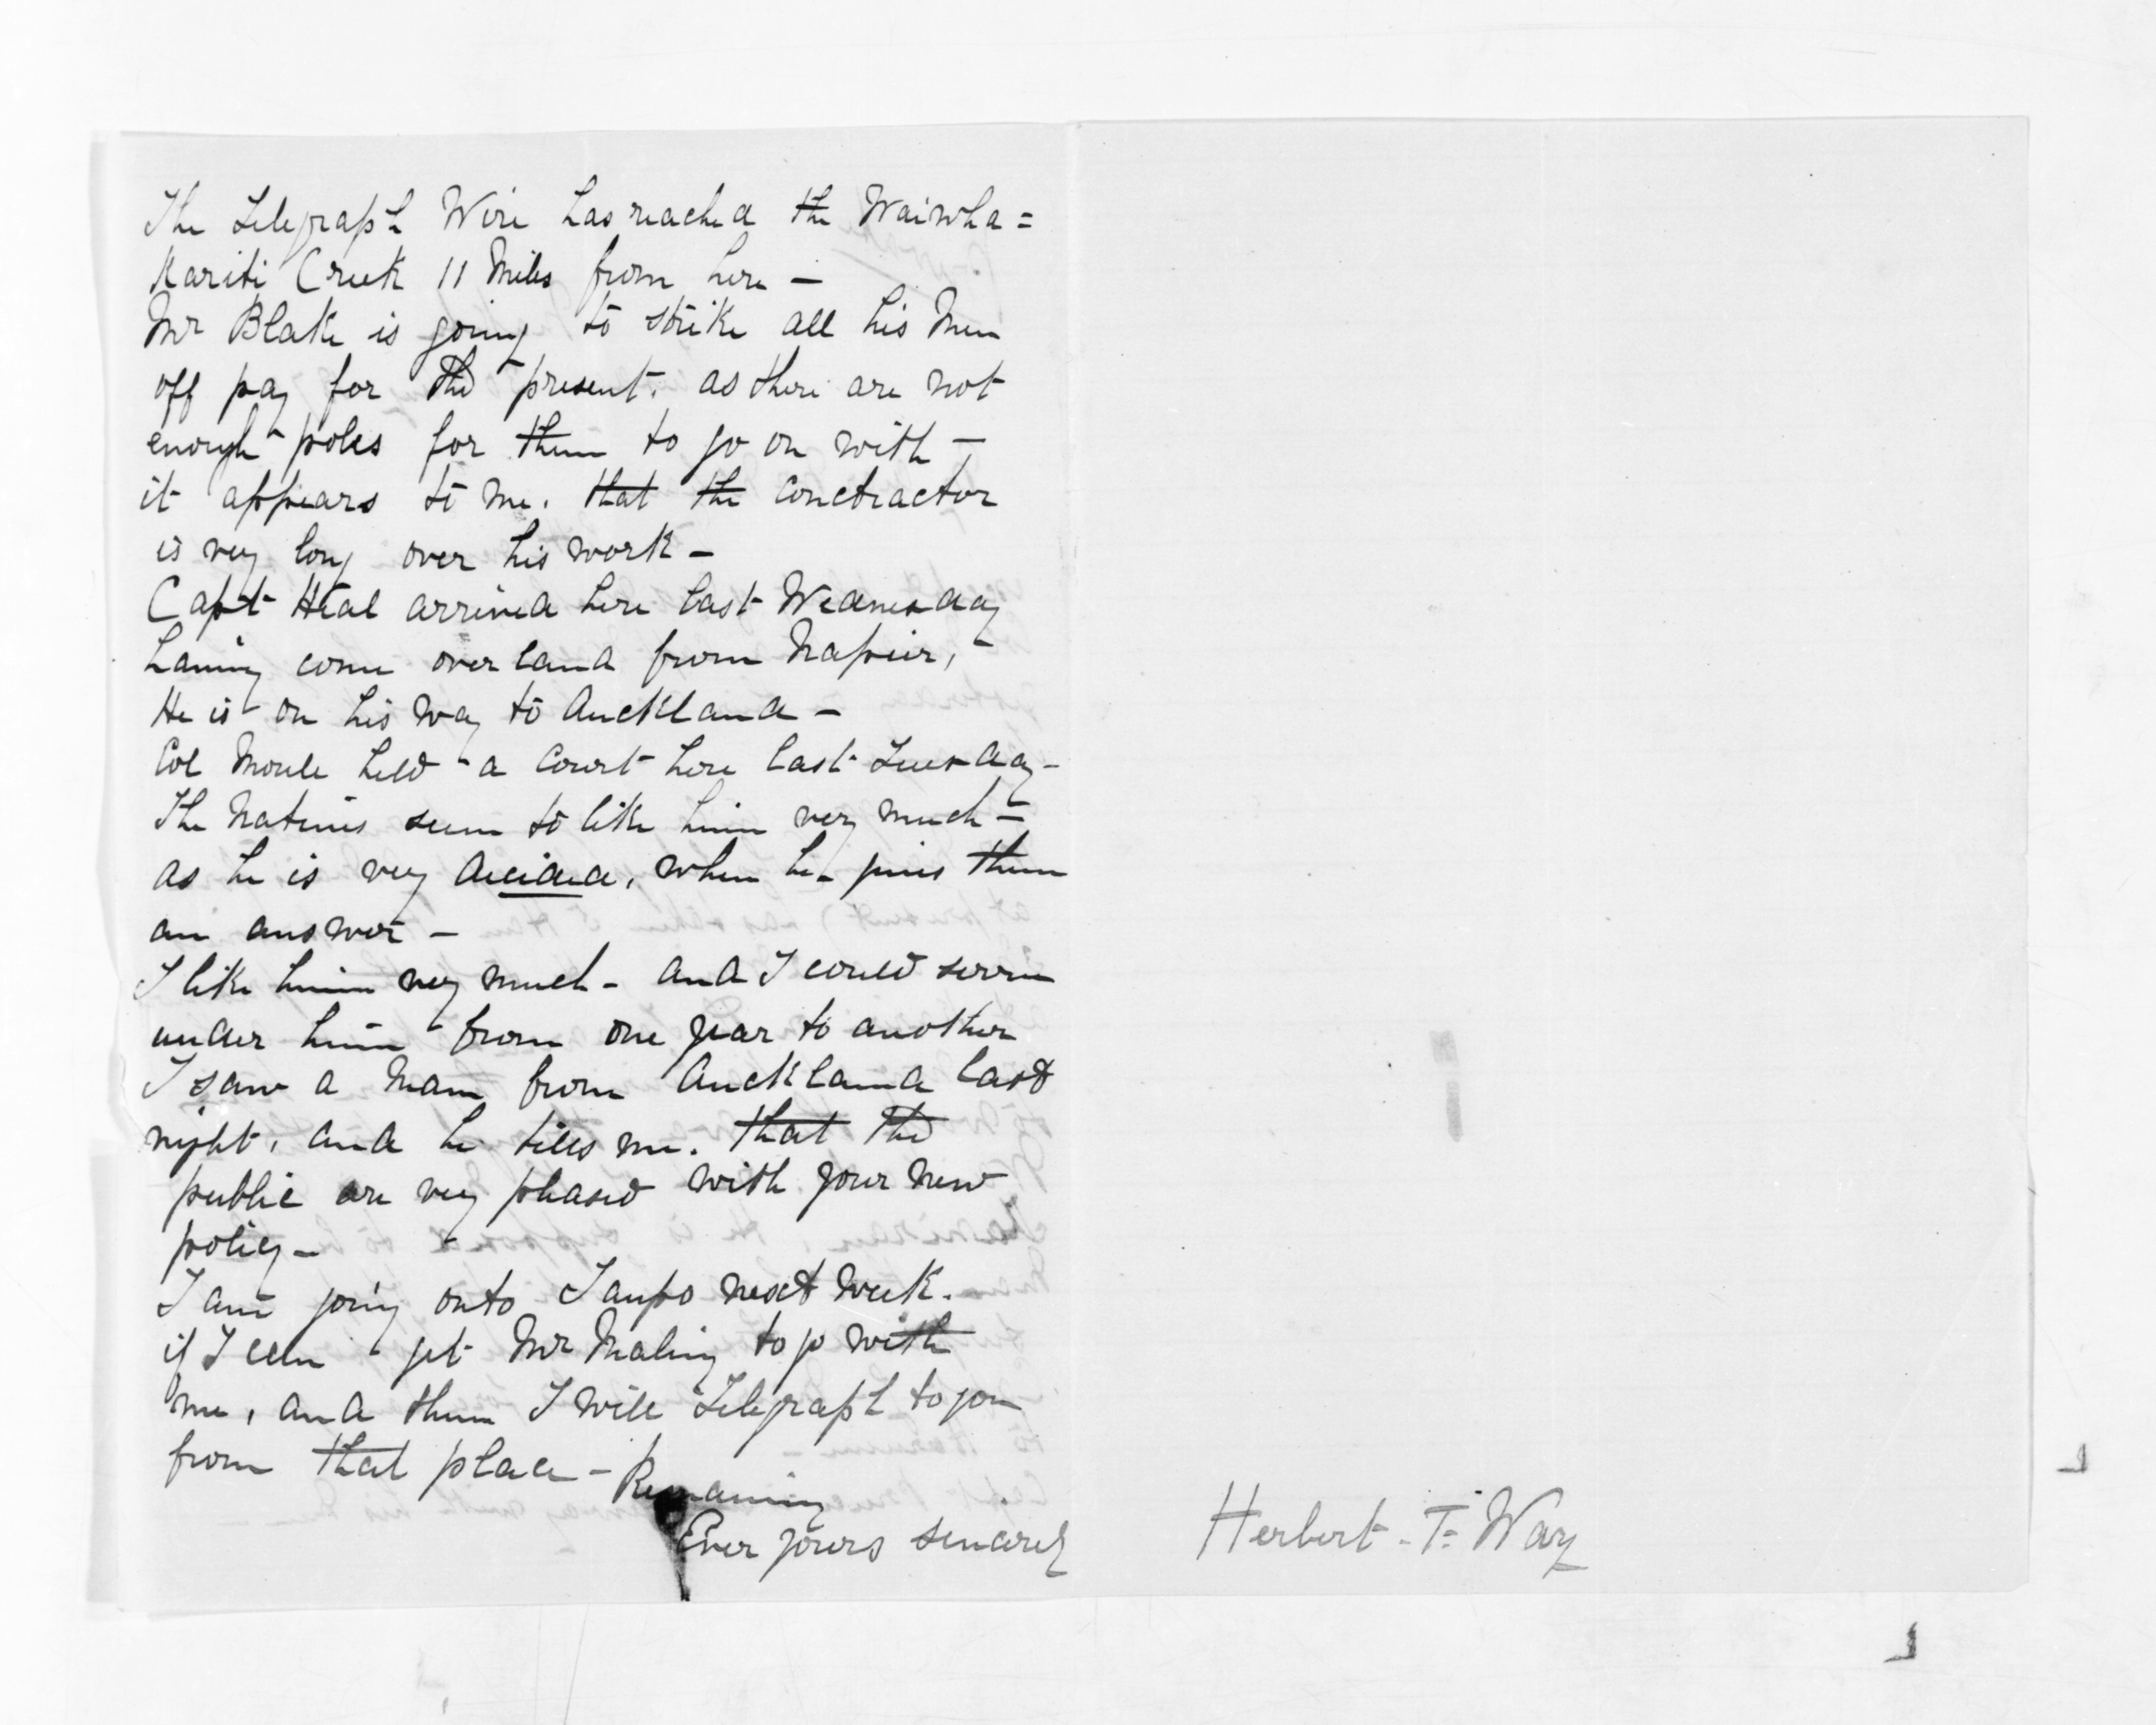 The Telegraph Wire has reached the Waiwha=
Kariti Creek 11 Miles from here —
Mr Blake is going to strike all his Men
off pay for the present. as there are not
enough poles for them to go on with —
it appears to me. that the conctractor
is very long over his work —
Capt Heal arrived here last Wednesday
having come overland from Napier,
He is on his way to Auckland —
Col Moule held a Court here last Tuesday —
The Natives seem to like him very much —
as he is very decided, when he gives them
an answer —
I like him very much — and I could serve
under him from one year to another
I saw a Man from Auckland last
night, and he tells me. that the
public are very pleased with your new
policy —
I am going onto Taupo next week.
if I can get Mr Maling to go with
me, and then I will Telegraph to you
from that place — Remaining
Ever yours sincerely
Herbert - T- Way